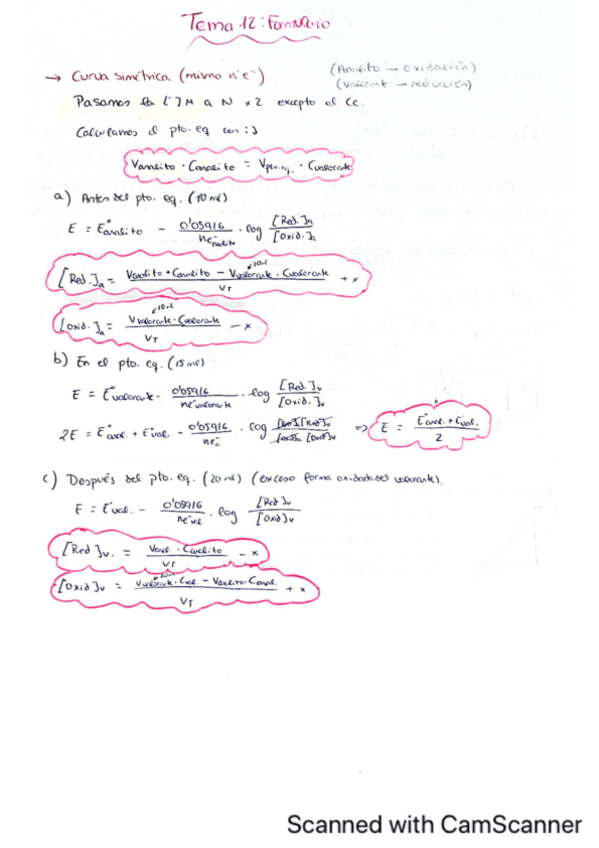 Tema 12: Formulario
→ Curva simétrica (mismo nºe⁻) (Analito → oxidación)
(Valorante → reducción)
Pasamos la [ ] M a N x2 excepto el Ce.
Calculamos el pto. eq con:
Vanalito · Canalito = Vpto.eq. · Cvalorante
a) Antes del pto. eq. (10 ml)
E = E°analito - 0'05916 / ne⁻analito · log [Red.]a / [Oxid.]a
[Red.]a = Vanalito · Canalito - Vvalorante · Cvalorante / VT + x
[Oxid.]a = Vvalorante · Cvalorante / VT - x
b) En el pto. eq. (15 ml)
E = E°valorante - 0'05916 / ne⁻valorante · log [Red.]v / [Oxid.]v
2E = E°anal + E°val. - 0'05916 / ne⁻ · log [Red]v / [Oxid]v ⇒ E = E°anal. + E°val. / 2
c) Después del pto. eq. (20 ml) (exceso forma oxidada del valorante).
E = E°val. - 0'05916 / ne⁻val · log [Red]v / [Oxid]v
[Red]v. = Vanal · Canalito / VT - x
[Oxid]v = Vvalorante · Cval. - Vanalito · Canal. / VT + x
Scanned with CamScanner